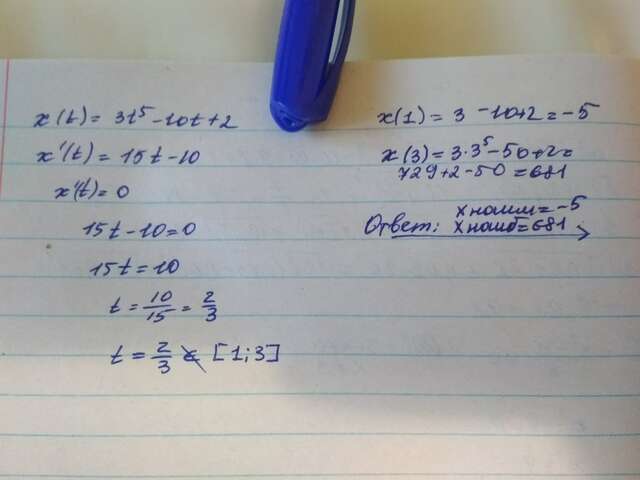 x(t) = 3t⁵ - 10t + 2
x'(t) = 15t - 10
x'(t) = 0
15t - 10 = 0
15t = 10
t = 10/15 = 2/3
t = 2/3 ∉ [1; 3]
x(1) = 3 - 10 + 2 = -5
x(3) = 3·3⁵ - 50 + 2 =
729 + 2 - 50 = 681
x наим = -5
Ответ: x наиб = 681